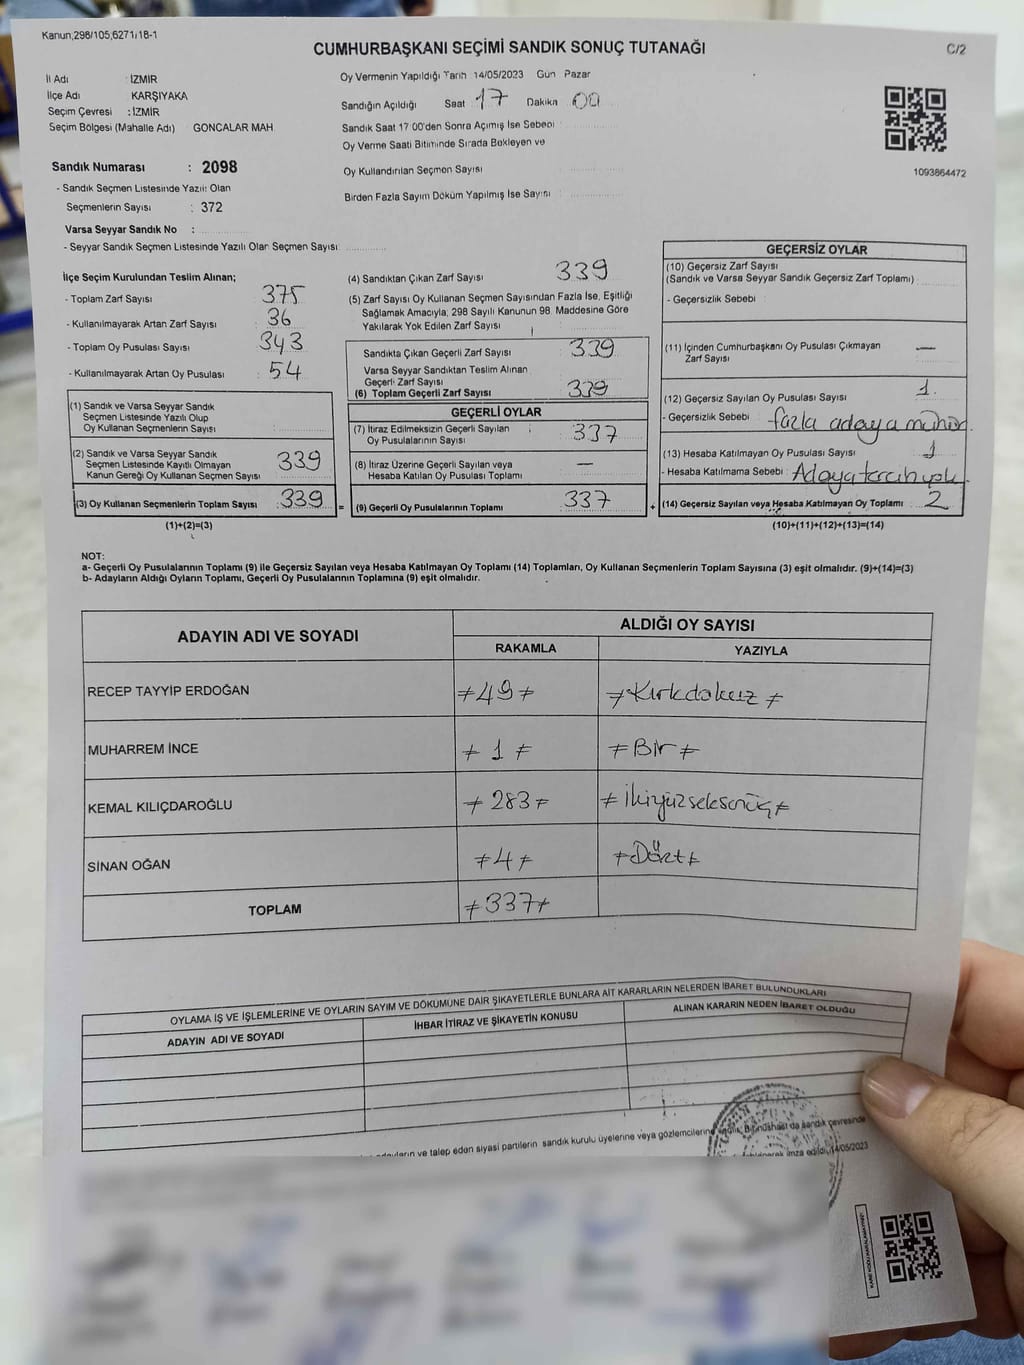 Kanun;298/105,6271/18-1
CUMHURBAŞKANI SEÇİMİ SANDIK SONUÇ TUTANAĞI
C/2
İl Adı : İZMİR
İlçe Adı KARŞIYAKA
Seçim Çevresi : İZMİR
Seçim Bölgesi (Mahalle Adı) GONCALAR MAH
Oy Vermenin Yapıldığı Tarih 14/05/2023 Gün Pazar
Sandığın Açıldığı Saat 17 Dakika 00
Sandık Saat 17 00'den Sonra Açımış İse Sebebi
Oy Verme Saati Bitiminde Sırada Bekleyen ve
Oy Kullandırılan Seçmen Sayısı
Birden Fazla Sayım Döküm Yapılmış İse Sayısı
1093864472
Sandık Numarası : 2098
- Sandık Seçmen Listesinde Yazılı Olan
Seçmenlerin Sayısı : 372
Varsa Seyyar Sandık No :
- Seyyar Sandık Seçmen Listesinde Yazılı Olan Seçmen Sayısı
İlçe Seçim Kurulundan Teslim Alınan;
- Toplam Zarf Sayısı 375
- Kullanılmayarak Artan Zarf Sayısı 36
- Toplam Oy Pusulası Sayısı : 343
- Kullanılmayarak Artan Oy Pusulası : 54
(1) Sandık ve Varsa Seyyar Sandık
Seçmen Listesinde Yazılı Olup
Oy Kullanan Seçmenlerin Sayısı
(2) Sandık ve Varsa Seyyar Sandık
Seçmen Listesinde Kayıtlı Olmayan
Kanun Gereği Oy Kullanan Seçmen Sayısı 339
(3) Oy Kullanan Seçmenlerin Toplam Sayısı 339
(1)+(2)=(3)
(4) Sandıktan Çıkan Zarf Sayısı 339
(5) Zarf Sayısı Oy Kullanan Seçmen Sayısından Fazla İse, Eşitliği
Sağlamak Amacıyla, 298 Sayılı Kanunun 98. Maddesine Göre
Yakılarak Yok Edilen Zarf Sayısı
Sandıkta Çıkan Geçerli Zarf Sayısı 339
Varsa Seyyar Sandıktan Teslim Alınan
Geçerli Zarf Sayısı
(6) Toplam Geçerli Zarf Sayısı 339
GEÇERLİ OYLAR
(7) İtiraz Edilmeksizin Geçerli Sayılan
Oy Pusulalarının Sayısı : 337
(8) İtiraz Üzerine Geçerli Sayılan veya
Hesaba Katılan Oy Pusulalarının Sayısı —
= (9) Geçerli Oy Pusulalarının Toplamı 337
GEÇERSİZ OYLAR
(10) Geçersiz Zarf Sayısı
(Sandık ve Varsa Seyyar Sandık Geçersiz Zarf Toplamı)
- Geçersizlik Sebebi :
(11) İçinden Cumhurbaşkanı Oy Pusulası Çıkmayan
Zarf Sayısı —
(12) Geçersiz Sayılan Oy Pusulası Sayısı 1
- Geçersizlik Sebebi fazla adaya mühür.
(13) Hesaba Katılmayan Oy Pusulası Sayısı 1
- Hesaba Katılmama Sebebi : Adaya tercih yok.
+ (14) Geçersiz Sayılan veya Hesaba Katılmayan Oy Toplamı 2
(10)+(11)+(12)+(13)=(14)
NOT:
a- Geçerli Oy Pusulalarının Toplamı (9) ile Geçersiz Sayılan veya Hesaba Katılmayan Oy Toplamı (14) Toplamları, Oy Kullanan Seçmenlerin Toplam Sayısına (3) eşit olmalıdır. (9)+(14)=(3)
b- Adayların Aldığı Oyların Toplamı, Geçerli Oy Pusulalarının Toplamına (9) eşit olmalıdır.
ADAYIN ADI VE SOYADI
ALDIĞI OY SAYISI
RAKAMLA YAZIYLA
RECEP TAYYİP ERDOĞAN ≠49≠ ≠Kırkdokuz≠
MUHARREM İNCE ≠1≠ ≠Bir≠
KEMAL KILIÇDAROĞLU ≠283≠ ≠İkiyüzseksenüç≠
SİNAN OĞAN ≠4≠ ≠Dört≠
TOPLAM ≠337≠
OYLAMA İŞ VE İŞLEMLERİNE VE OYLARIN SAYIM VE DÖKÜMÜNE DAİR ŞİKAYETLERLE BUNLARA AİT KARARLARIN NELERDEN İBARET BULUNDUKLARI
ADAYIN ADI VE SOYADI İHBAR İTİRAZ VE ŞİKAYETİN KONUSU ALINAN KARARIN NEDEN İBARET OLDUĞU
ve talep eden siyasi partilerin sandık kurulu üyelerine veya gözlemcilerine sandık çevresinde
imza edildi.14/05/2023